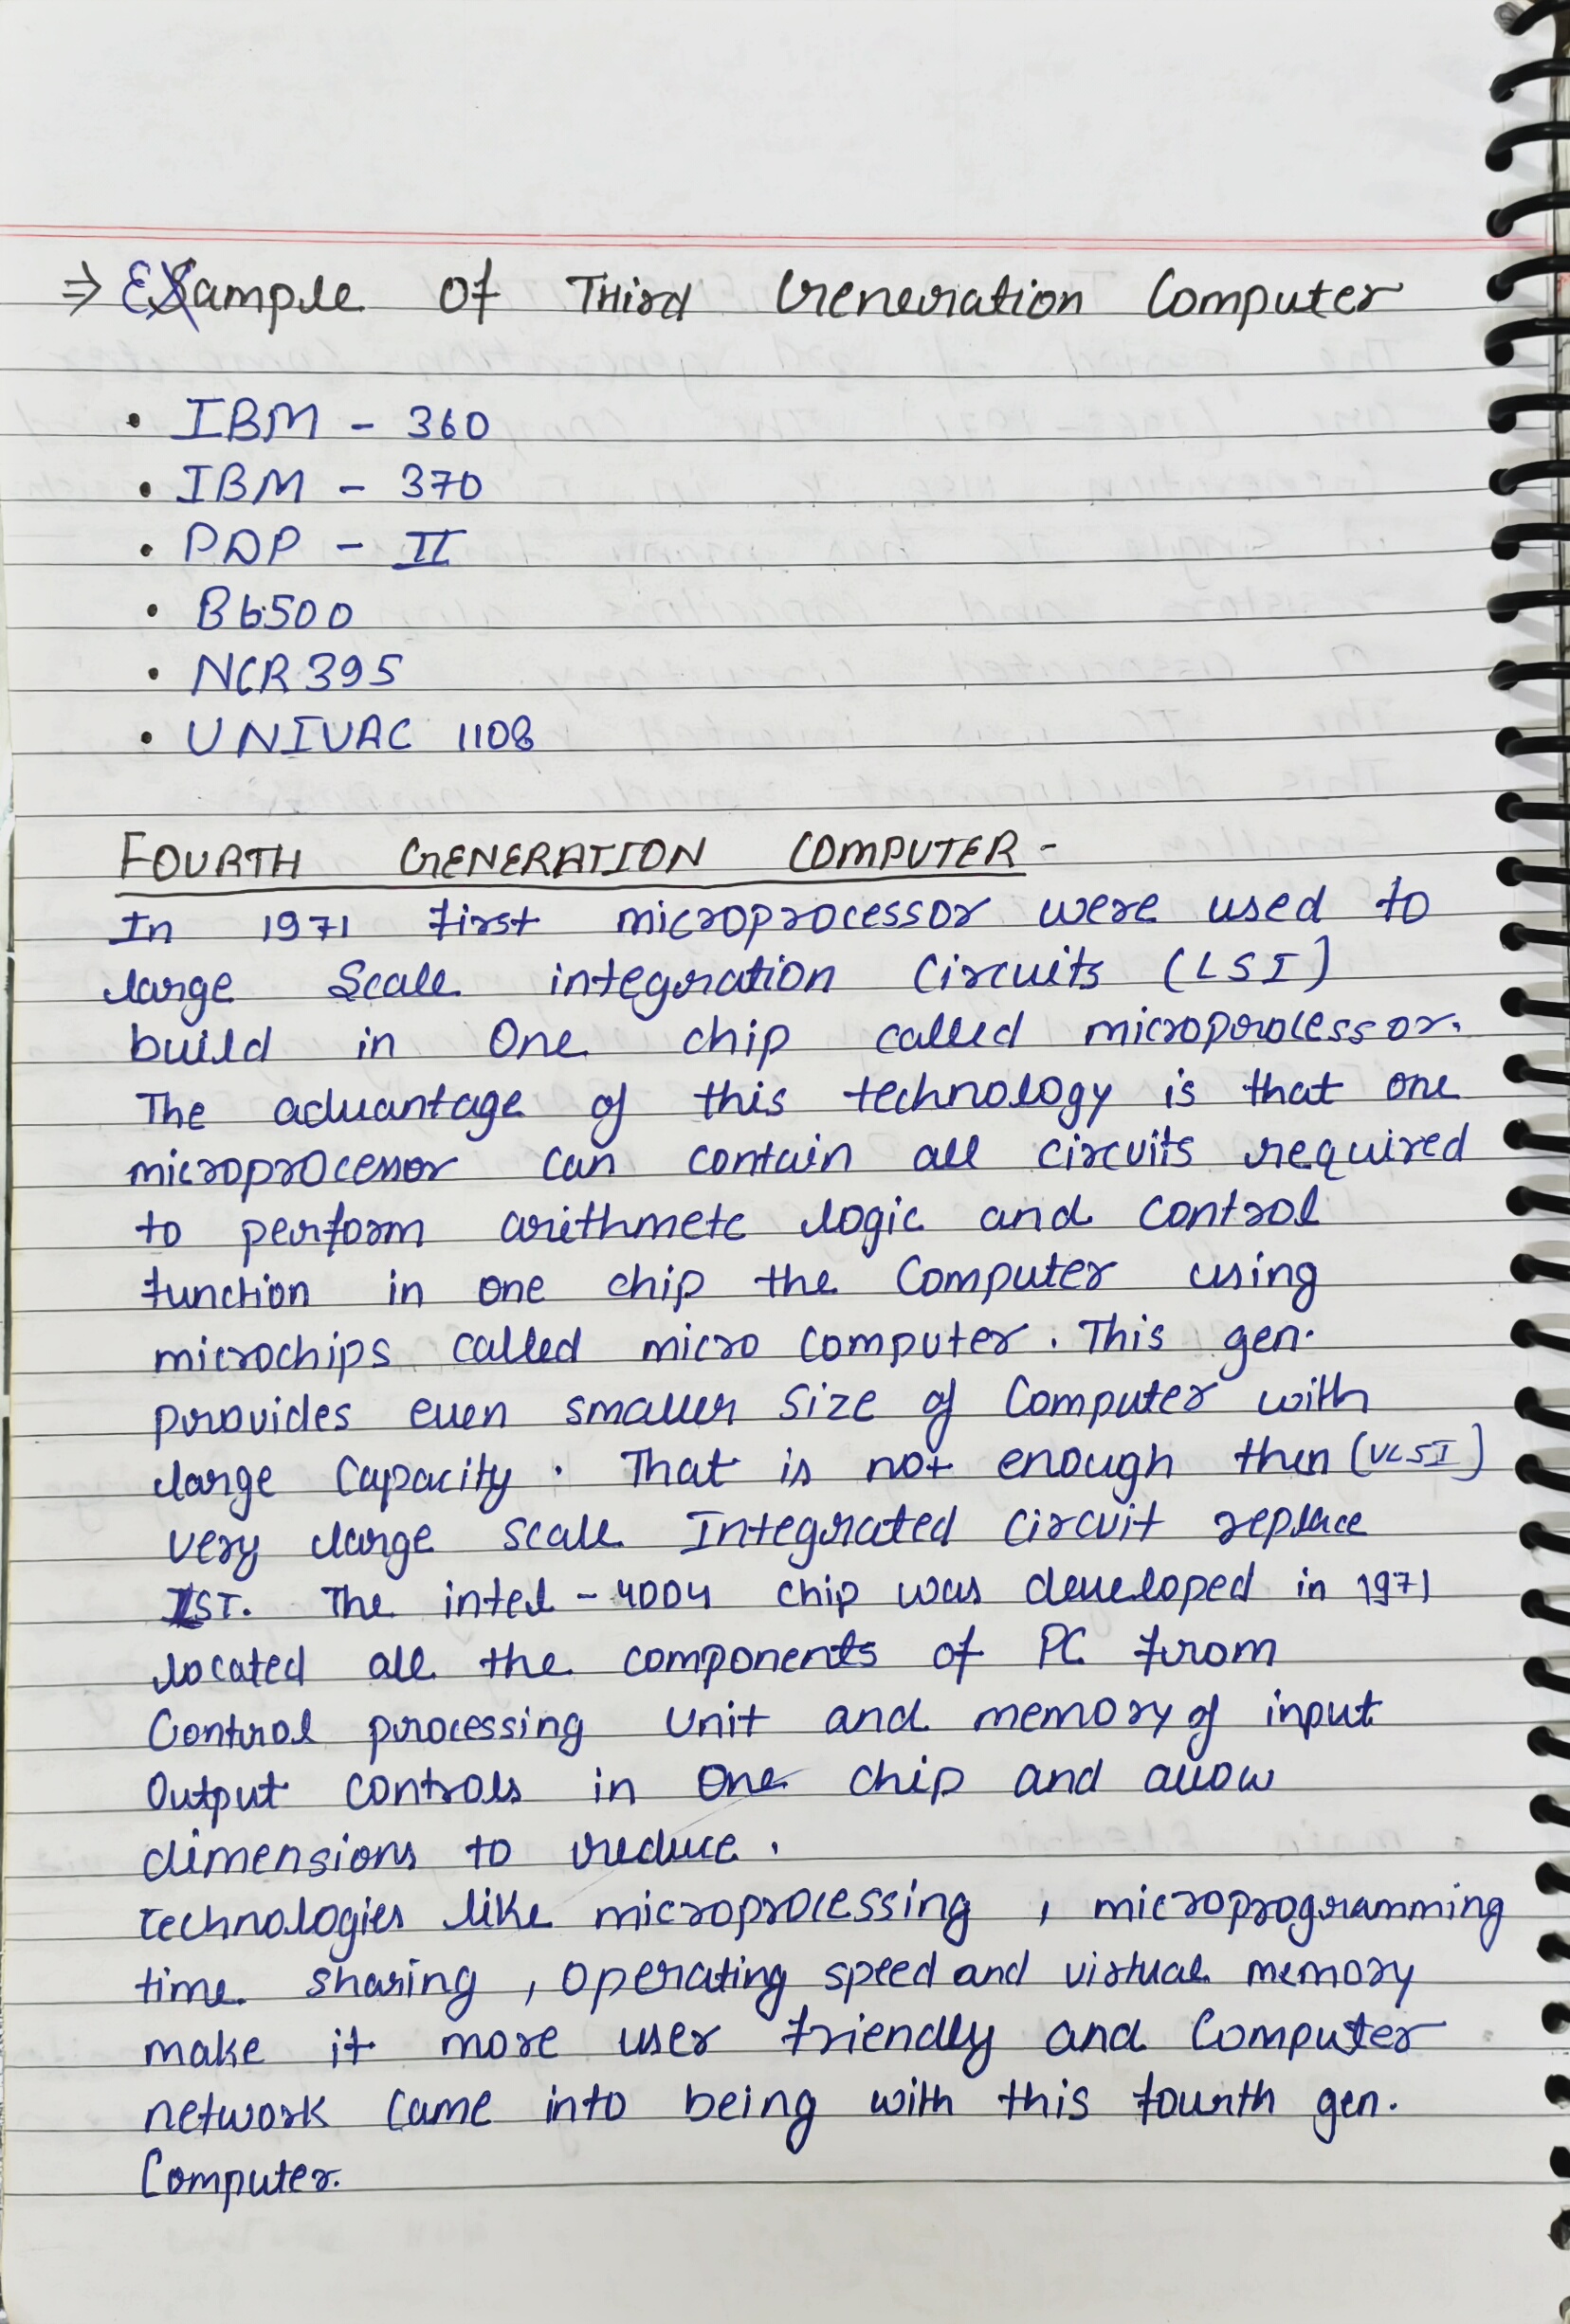 ⇒ Example Of Third Generation Computer
• IBM - 360
• IBM - 370
• PDP - II
• B6500
• NCR 395
• UNIVAC 1108
FOURTH GENERATION COMPUTER -
In 1971 first microprocessor were used to
large Scale integration Circuits (LSI)
build in One chip called microprocessor.
The advantage of this technology is that one
microprocessor can contain all circuits required
to perform arithmetc logic and control
function in one chip the Computer using
microchips called micro computer. This gen.
provides even smaller size of Computer with
large Capacity. That is not enough then (VLSI)
very large scale Integrated Circuit replace
IST. The intel - 4004 chip was developed in 1971
located all the components of PC from
Control processing Unit and memory of input
Output controls in One chip and allow
dimensions to reduce.
Technologies like microprocessing, microprogramming
time sharing, operating speed and virtual memory
make it more user friendly and Computer
network came into being with this fourth gen.
Computer.